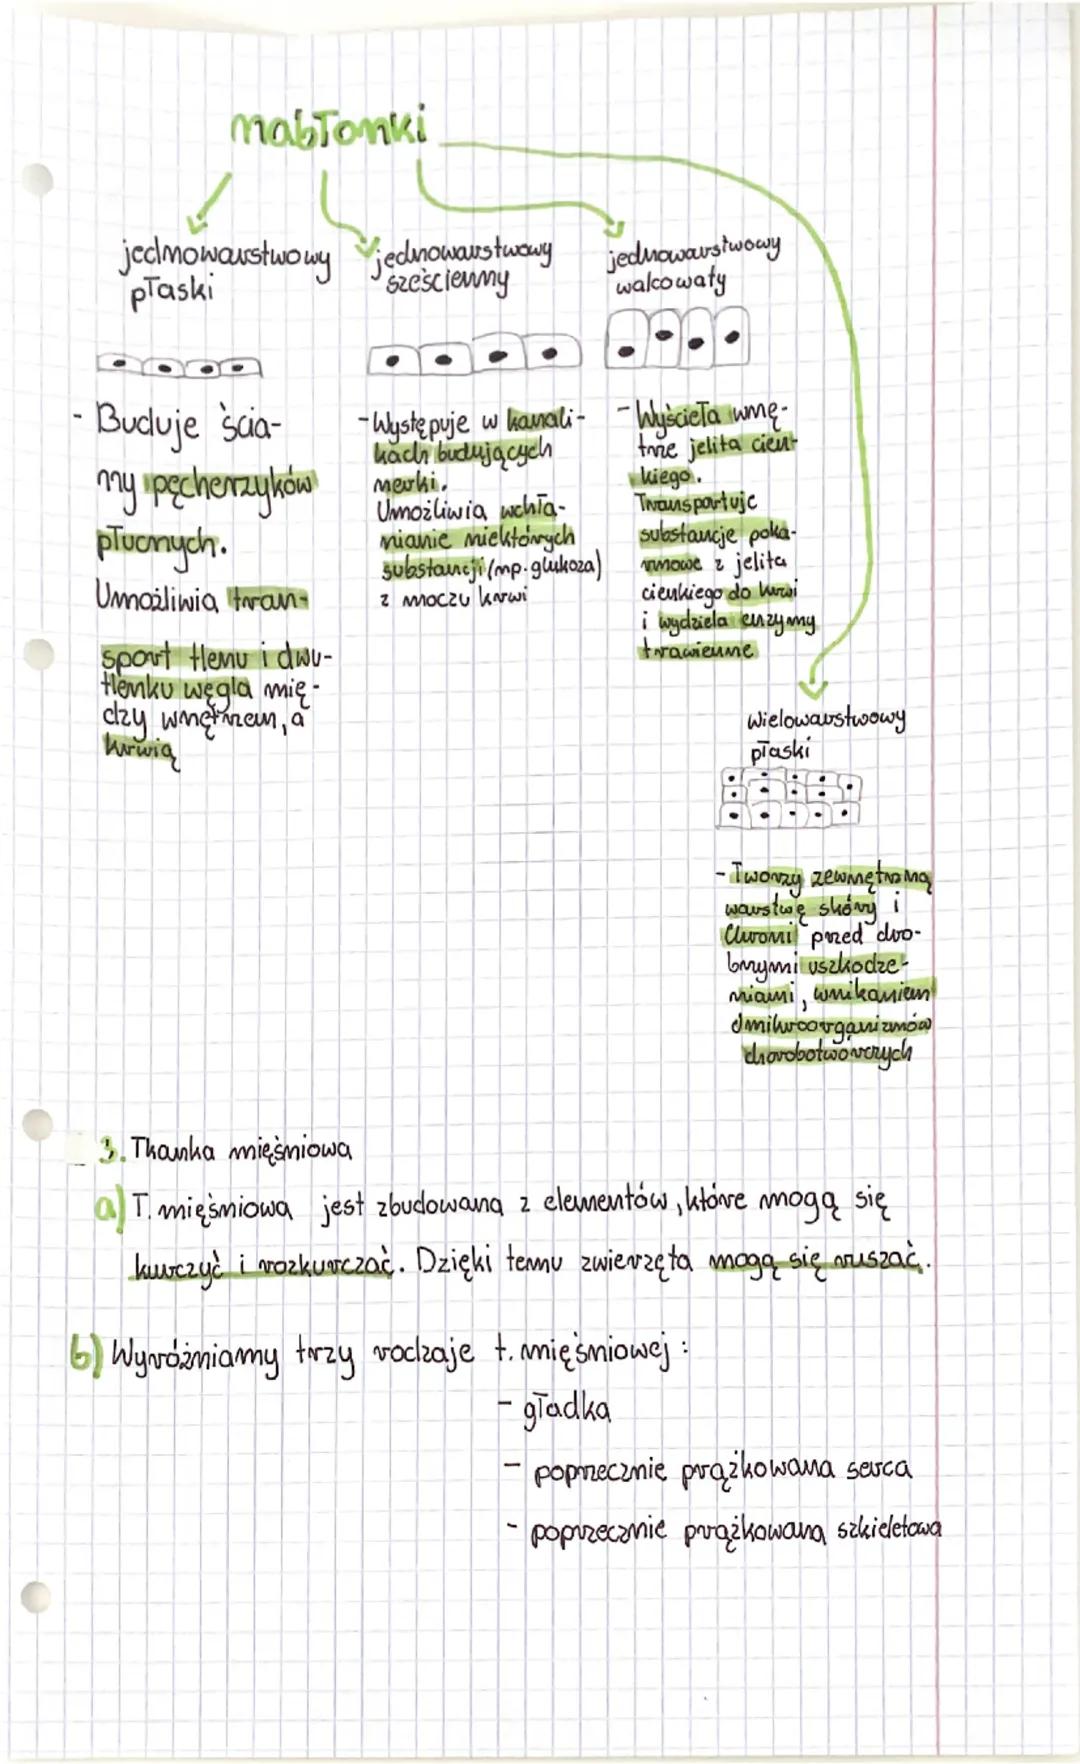 nabłonki
jednowarstwowy
płaski
- Buduje ścia-
ny pęcherzyków
płucnych.
Umożliwia tran-
sport tlenu i dwu-
tlenku węgla mię-
dzy wnętrzem, a
krwią
jednowarstwowy
sześcienny
- Występuje w kanali-
kach budujących
nerki.
Umożliwia wchła-
nianie niektórych
substancji (np. glukoza)
z moczu krwi
jednowarstwowy
walcowaty
- Wyścieła wnę-
trze jelita cien-
kiego.
Transportuje
substancje poka-
rmowe z jelita
cienkiego do krwi
i wydziela enzymy
trawienne
Wielowarstwowy
płaski
- Tworzy zewnętrzną
warstwę skóry i
Chroni przed dro-
bnymi uszkodze-
niami, wnikaniem
dmikroorganizmów
chorobotwórczych
3. Tkanka mięśniowa
a) T. mięśniowa jest zbudowana z elementów, które mogą się
kurczyć i rozkurczać. Dzięki temu zwierzęta mogą się ruszać.
b) Wyróżniamy trzy rodzaje t. mięśniowej:
- gładka
- poprzecznie prążkowana serca
- poprzecznie prążkowana szkieletowa